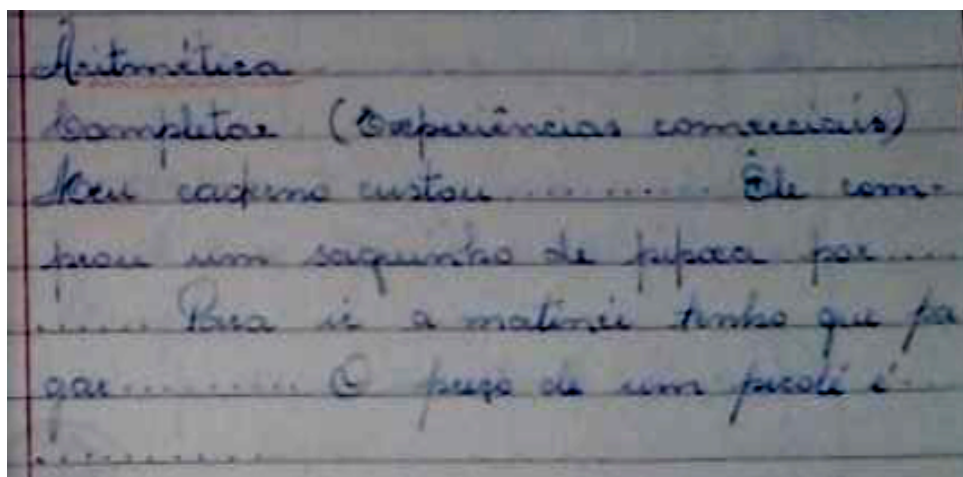 Aritmética
Completar (Experiências comerciais)
Meu caderno custou ............ Êle com-
prou um saquinho de pipoca por ....
....... Para ir a matinée tenho que pa
gar ........... O preço de um picolé é ..
............